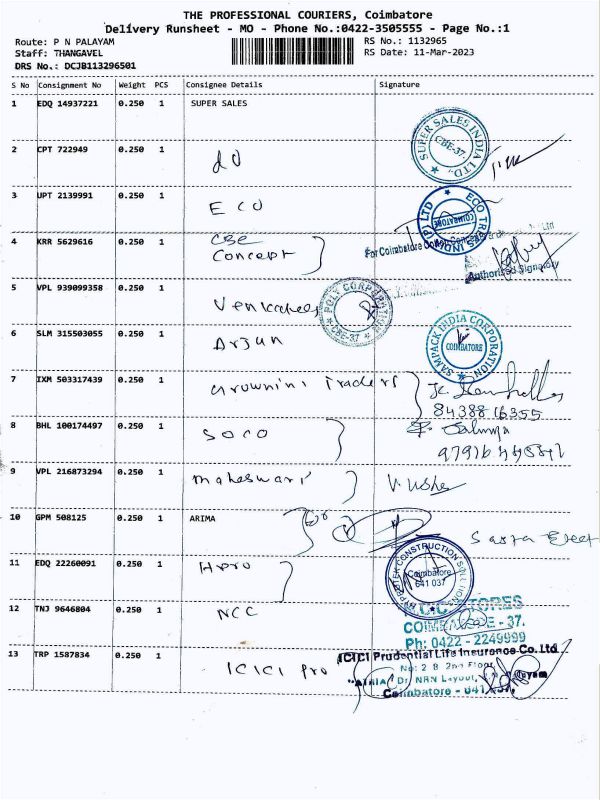 THE PROFESSIONAL COURIERS, Coimbatore
Delivery Runsheet - MO - Phone No.:0422-3505555 - Page No.:1
Route: P N PALAYAM RS No.: 1132965
Staff: THANGAVEL RS Date: 11-Mar-2023
DRS No.: DCJB113296501
S No Consignment No Weight PCS Consignee Details Signature
1 EDQ 14937221 0.250 1 SUPER SALES
SUPER SALES INDIA LTD.
CBE-37.
2 CPT 722949 0.250 1 do
3 UPT 2139991 0.250 1 ECO
COIMBATORE
4 KRR 5629616 0.250 1 CBE
Concept
For Coimbatore
Authorised Signatory
5 VPL 939099358 0.250 1
POLY CORPORATION
CBE-37
6 SLM 315503055 0.250 1 Arjun
SAMPACK INDIA CORPORATION
COIMBATORE
7 IXM 503317439 0.250 1 Traders
8438816355
8 BHL 100174497 0.250 1 SOCO
9 VPL 216873294 0.250 1 Maheswari V. Usha
10 GPM 508125 0.250 1 ARIMA
11 EDQ 22260091 0.250 1 Hpro
CONSTRUCTION
Coimbatore
641 037
12 TNJ 9646804 0.250 1 NCC
COIMBATORE - 37.
Ph: 0422 - 2249999
13 TRP 1587834 0.250 1 ICICI Pro
ICICI Prudential Life Insurance Co. Ltd
No: 2 B 2nd Floor
Dr NRN Layout,
Coimbatore - 641 037.